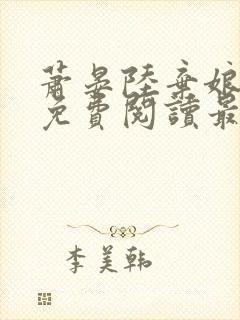 蕭晏陸棄娘
免費閱讀最
李美韩